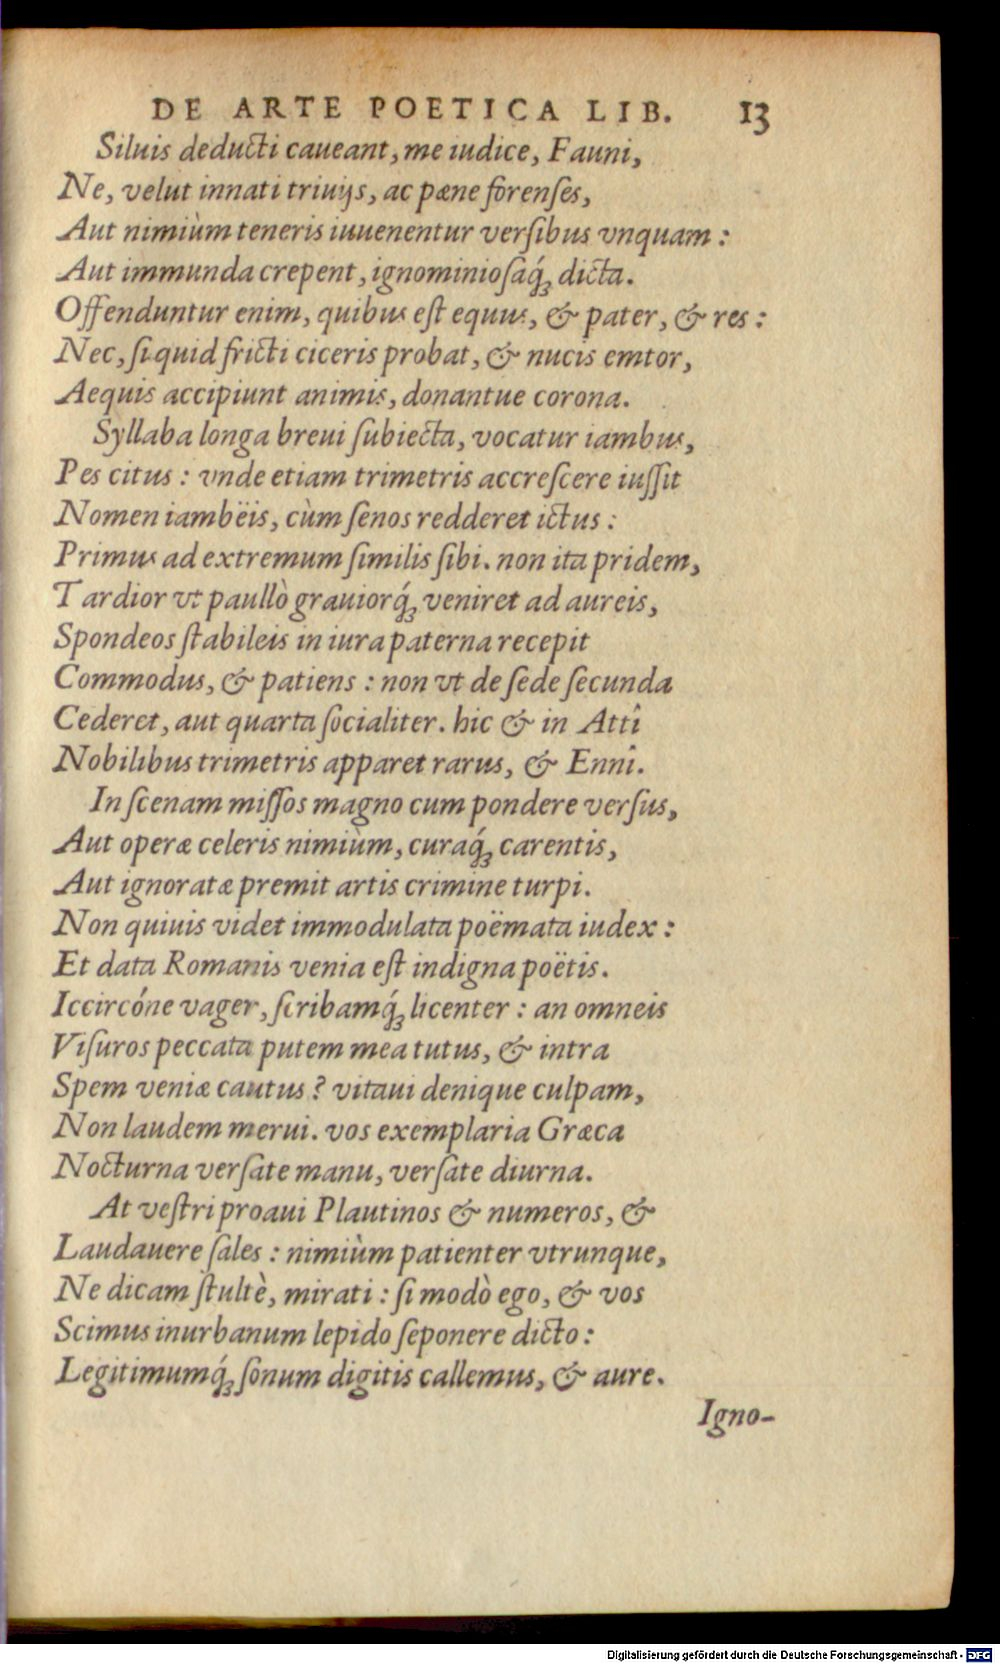 DE ARTE POETICA LIB. 13
Siluis deducti caueant, me iudice, Fauni,
Ne, velut innati triuijs, ac pæne forenses,
Aut nimiùm teneris iuuenentur versibus vnquam:
Aut immunda crepent, ignominiosaq́; dicta.
Offenduntur enim, quibus est equus, & pater, & res:
Nec, si quid fricti ciceris probat, & nucis emtor,
Aequis accipiunt animis, donantue corona.
Syllaba longa breui subiecta, vocatur iambus,
Pes citus: vnde etiam trimetris accrescere iussit
Nomen iambëis, cùm senos redderet ictus:
Primus ad extremum similis sibi. non ita pridem,
Tardior vt paullò grauiorq́; veniret ad aureis,
Spondeos stabileis in iura paterna recepit
Commodus, & patiens: non vt de sede secunda
Cederet, aut quarta socialiter. hic & in Attî
Nobilibus trimetris apparet rarus, & Ennî.
In scenam missos magno cum pondere versus,
Aut operæ celeris nimiùm, curaq́; carentis,
Aut ignoratæ premit artis crimine turpi.
Non quiuis videt immodulata poëmata iudex:
Et data Romanis venia est indigna poëtis.
Iccircóne vager, scribamq́; licenter: an omneis
Visuros peccata putem mea tutus, & intra
Spem veniæ cautus? vitaui denique culpam,
Non laudem merui. vos exemplaria Græca
Nocturna versate manu, versate diurna.
At vestri proaui Plautinos & numeros, &
Laudauere sales: nimiùm patienter vtrunque,
Ne dicam stultè, mirati: si modò ego, & vos
Scimus inurbanum lepido seponere dicto:
Legitimumq́; sonum digitis callemus, & aure.
Igno-
Digitalisierung gefördert durch die Deutsche Forschungsgemeinschaft - DFG